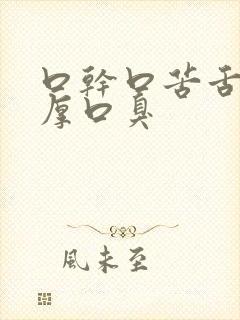 口幹口苦舌
厚口臭
風未至